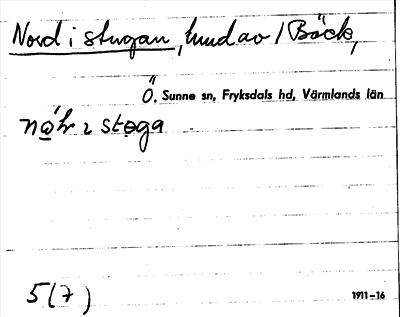 Nord i stugan, hud av 1 Bäck,
Ö. Sunne sn, Fryksdals hd, Värmlands län
stǫga
5(7)
1911–16